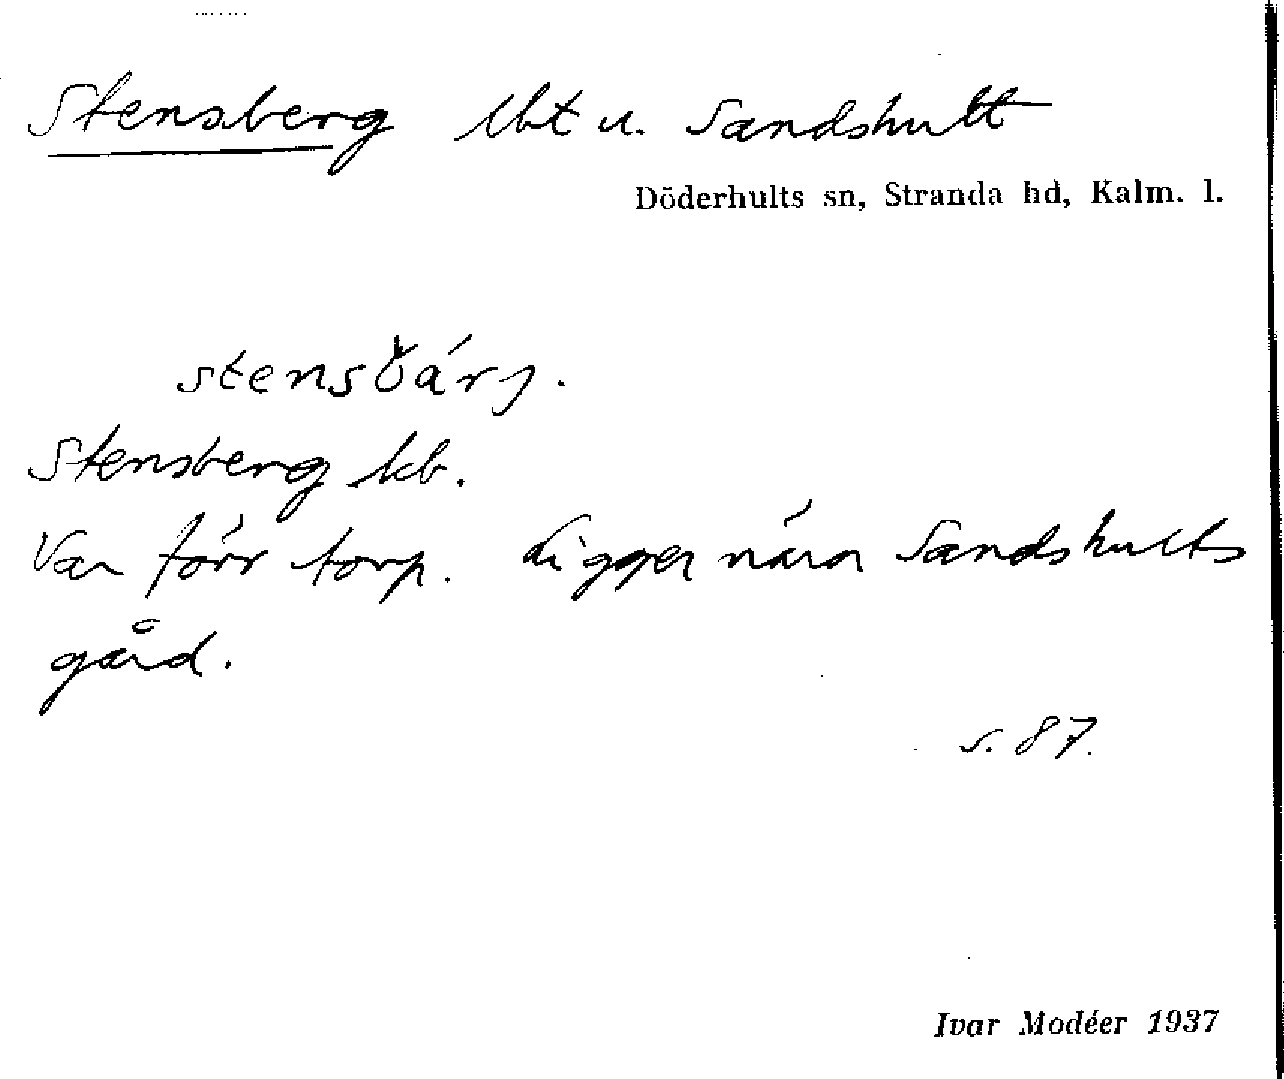 Stensberg lht u. Sandshult
Döderhults sn, Stranda hd, Kalm. l.
stensbárj.
Stensberg kb.
Var förr torp. Ligger nära Sandshults
gård.
s. 87.
Ivar Modéer 1937